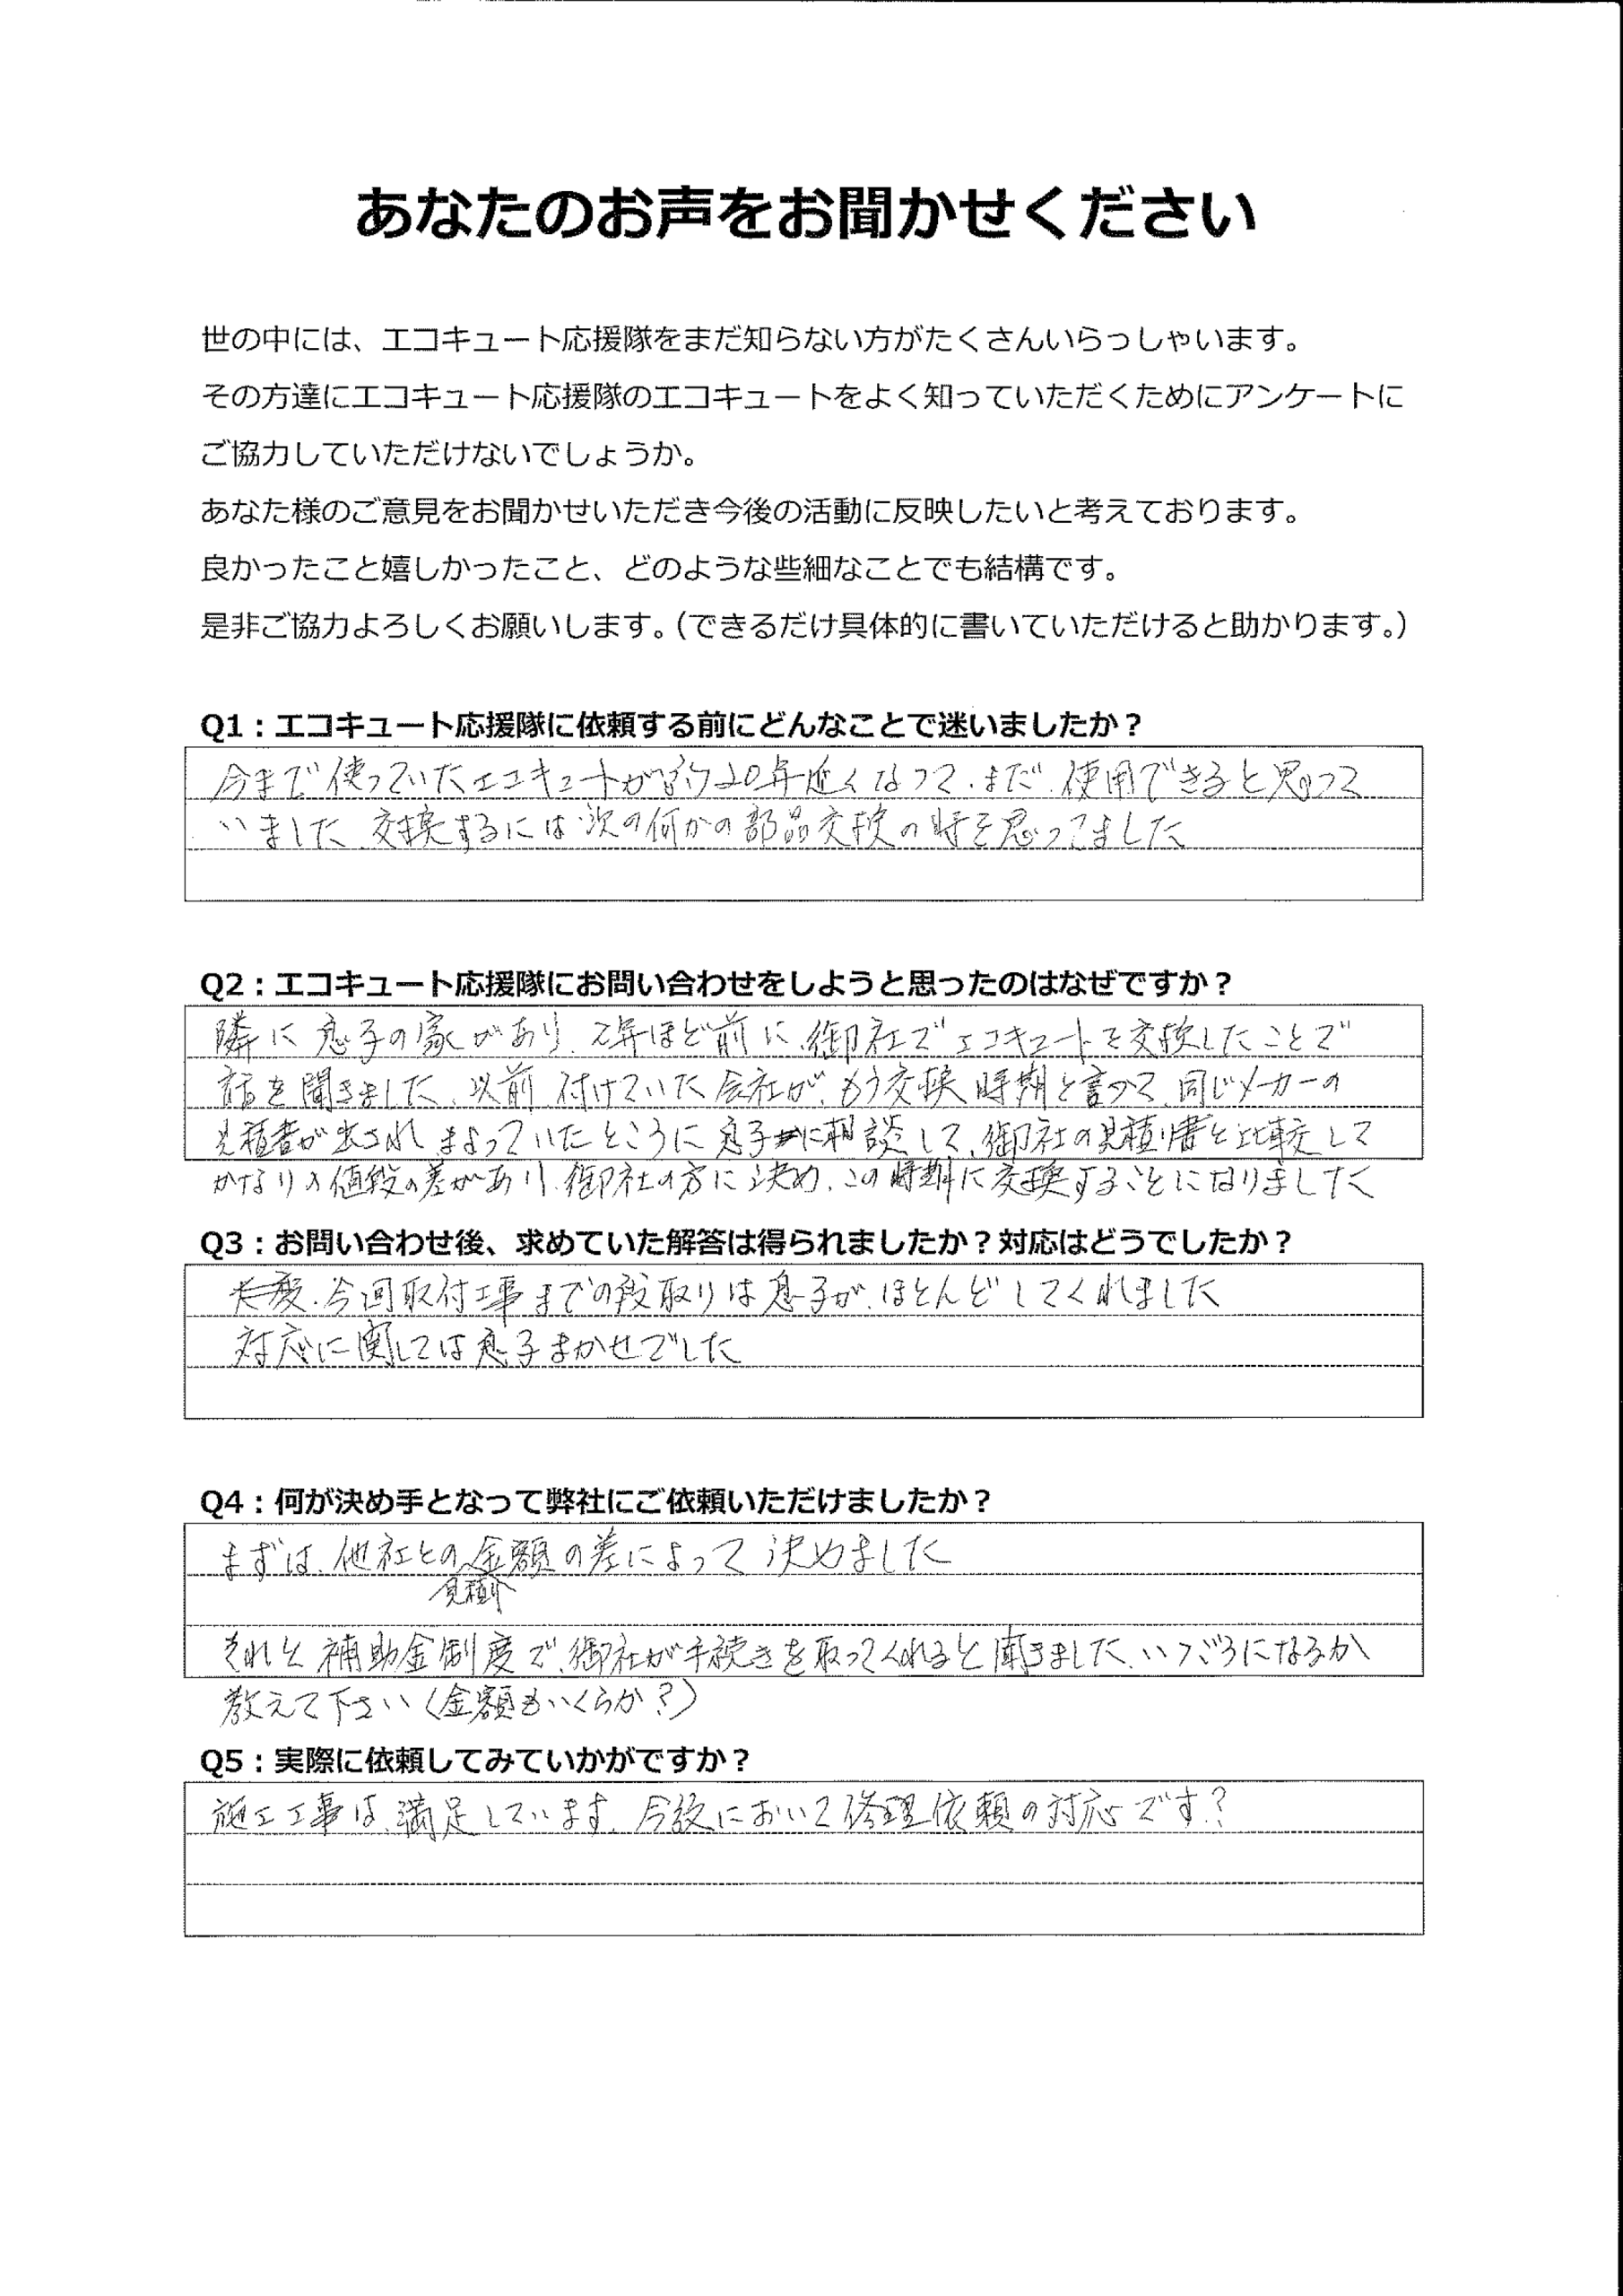 あなたのお声をお聞かせください
世の中には、エコキュート応援隊をまだ知らない方がたくさんいらっしゃいます。
その方達にエコキュート応援隊のエコキュートをよく知っていただくためにアンケートに
ご協力していただけないでしょうか。
あなた様のご意見をお聞かせいただき今後の活動に反映したいと考えております。
良かったこと嬉しかったこと、どのような些細なことでも結構です。
是非ご協力よろしくお願いします。（できるだけ具体的に書いていただけると助かります。）
Q1：エコキュート応援隊に依頼する前にどんなことで迷いましたか？
今まで使っていたエコキュートが約20年近くなって、まだ、使用できると思って
いました、交換するには次の何かの部品交換の時と思ってました
Q2：エコキュート応援隊にお問い合わせをしようと思ったのはなぜですか？
隣に息子の家があり、2年ほど前に、御社でエコキュートを交換したことで
話を聞きました、以前、付けていた会社が、もう交換時期と言って、同じメーカーの
見積書が出されまよっていたところに息子に相談して、御社の見積り書と比較して
かなりの値段の差があり、御社の方に決め、この時期に交換することになりました
Q3：お問い合わせ後、求めていた解答は得られましたか？対応はどうでしたか？
今回取付工事までの段取りは息子が、ほとんどしてくれました
対応に関しては息子まかせでした
Q4：何が決め手となって弊社にご依頼いただけましたか？
まずは、他社との金額の差によって決めました
見積り
それと補助金制度で、御社が手続きを取ってくれると聞きました、いつごろになるか
教えて下さい（金額もいくらか？）
Q5：実際に依頼してみていかがですか？
施工工事は、満足しています、今後において修理依頼の対応です？